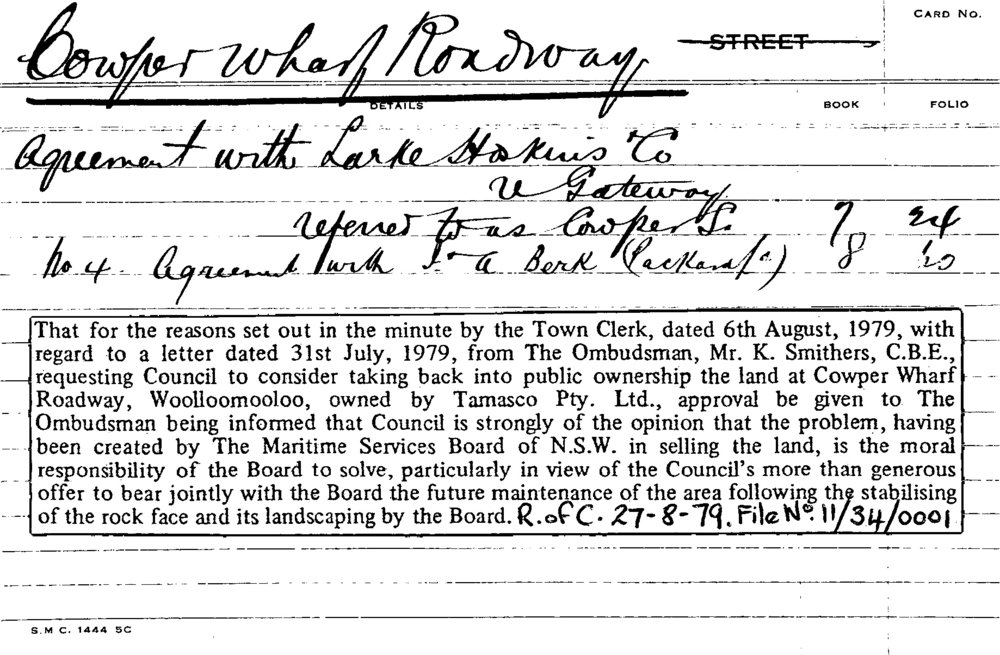 CARD NO.
Cowper Wharf Roadway STREET
DETAILS BOOK FOLIO
Agreement with Larke Hoskins Co
re Gateway
referred to as Cowper S. 7 24
No 4 Agreement with J. A Berk (Packard &c) 8 20
That for the reasons set out in the minute by the Town Clerk, dated 6th August, 1979, with
regard to a letter dated 31st July, 1979, from The Ombudsman, Mr. K. Smithers, C.B.E.,
requesting Council to consider taking back into public ownership the land at Cowper Wharf
Roadway, Woolloomooloo, owned by Tamasco Pty. Ltd., approval be given to The
Ombudsman being informed that Council is strongly of the opinion that the problem, having
been created by The Maritime Services Board of N.S.W. in selling the land, is the moral
responsibility of the Board to solve, particularly in view of the Council's more than generous
offer to bear jointly with the Board the future maintenance of the area following the stabilising
of the rock face and its landscaping by the Board. R.of C. 27-8-79. File No. 11/34/0001
S.M C. 1444 5C